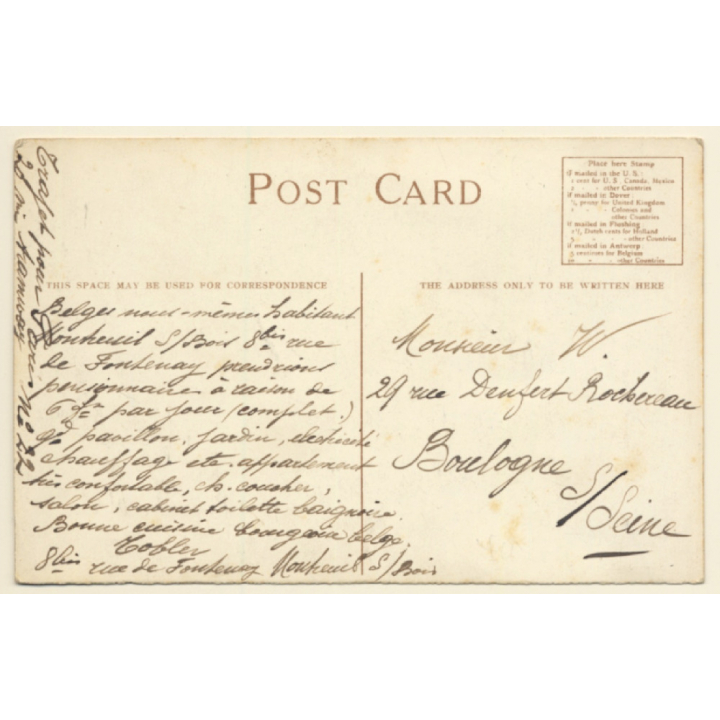 POST CARD
Place here Stamp
If mailed in the U.S.:
1 cent for U.S., Canada, Mexico
2 " " other Countries
If mailed in Dover:
½ penny for United Kingdom
1 " " Colonies and
other Countries
If mailed in Flushing:
2½ Dutch cents for Holland
5 " " " other Countries
If mailed in Antwerp:
5 centimes for Belgium
10 " " other Countries
THIS SPACE MAY BE USED FOR CORRESPONDENCE
THE ADDRESS ONLY TO BE WRITTEN HERE
Belges nous-mêmes habitant
Montreuil S/Bois 8bis rue
de Fontenay prendrions
pensionnaire à raison de
6 par jour (complet.)
gd pavillon, jardin, électricité
chauffage etc. appartement
très confortable, ch. coucher,
salon, cabinet toilette baignoire.
Bonne cuisine bourgeoise belge.
Tobler
8bis rue de Fontenay Montreuil S/Bois
Trajet pour Paris
20 mi tramway No
Monsieur W.
29 rue Denfert Rochereau
Boulogne
S/Seine